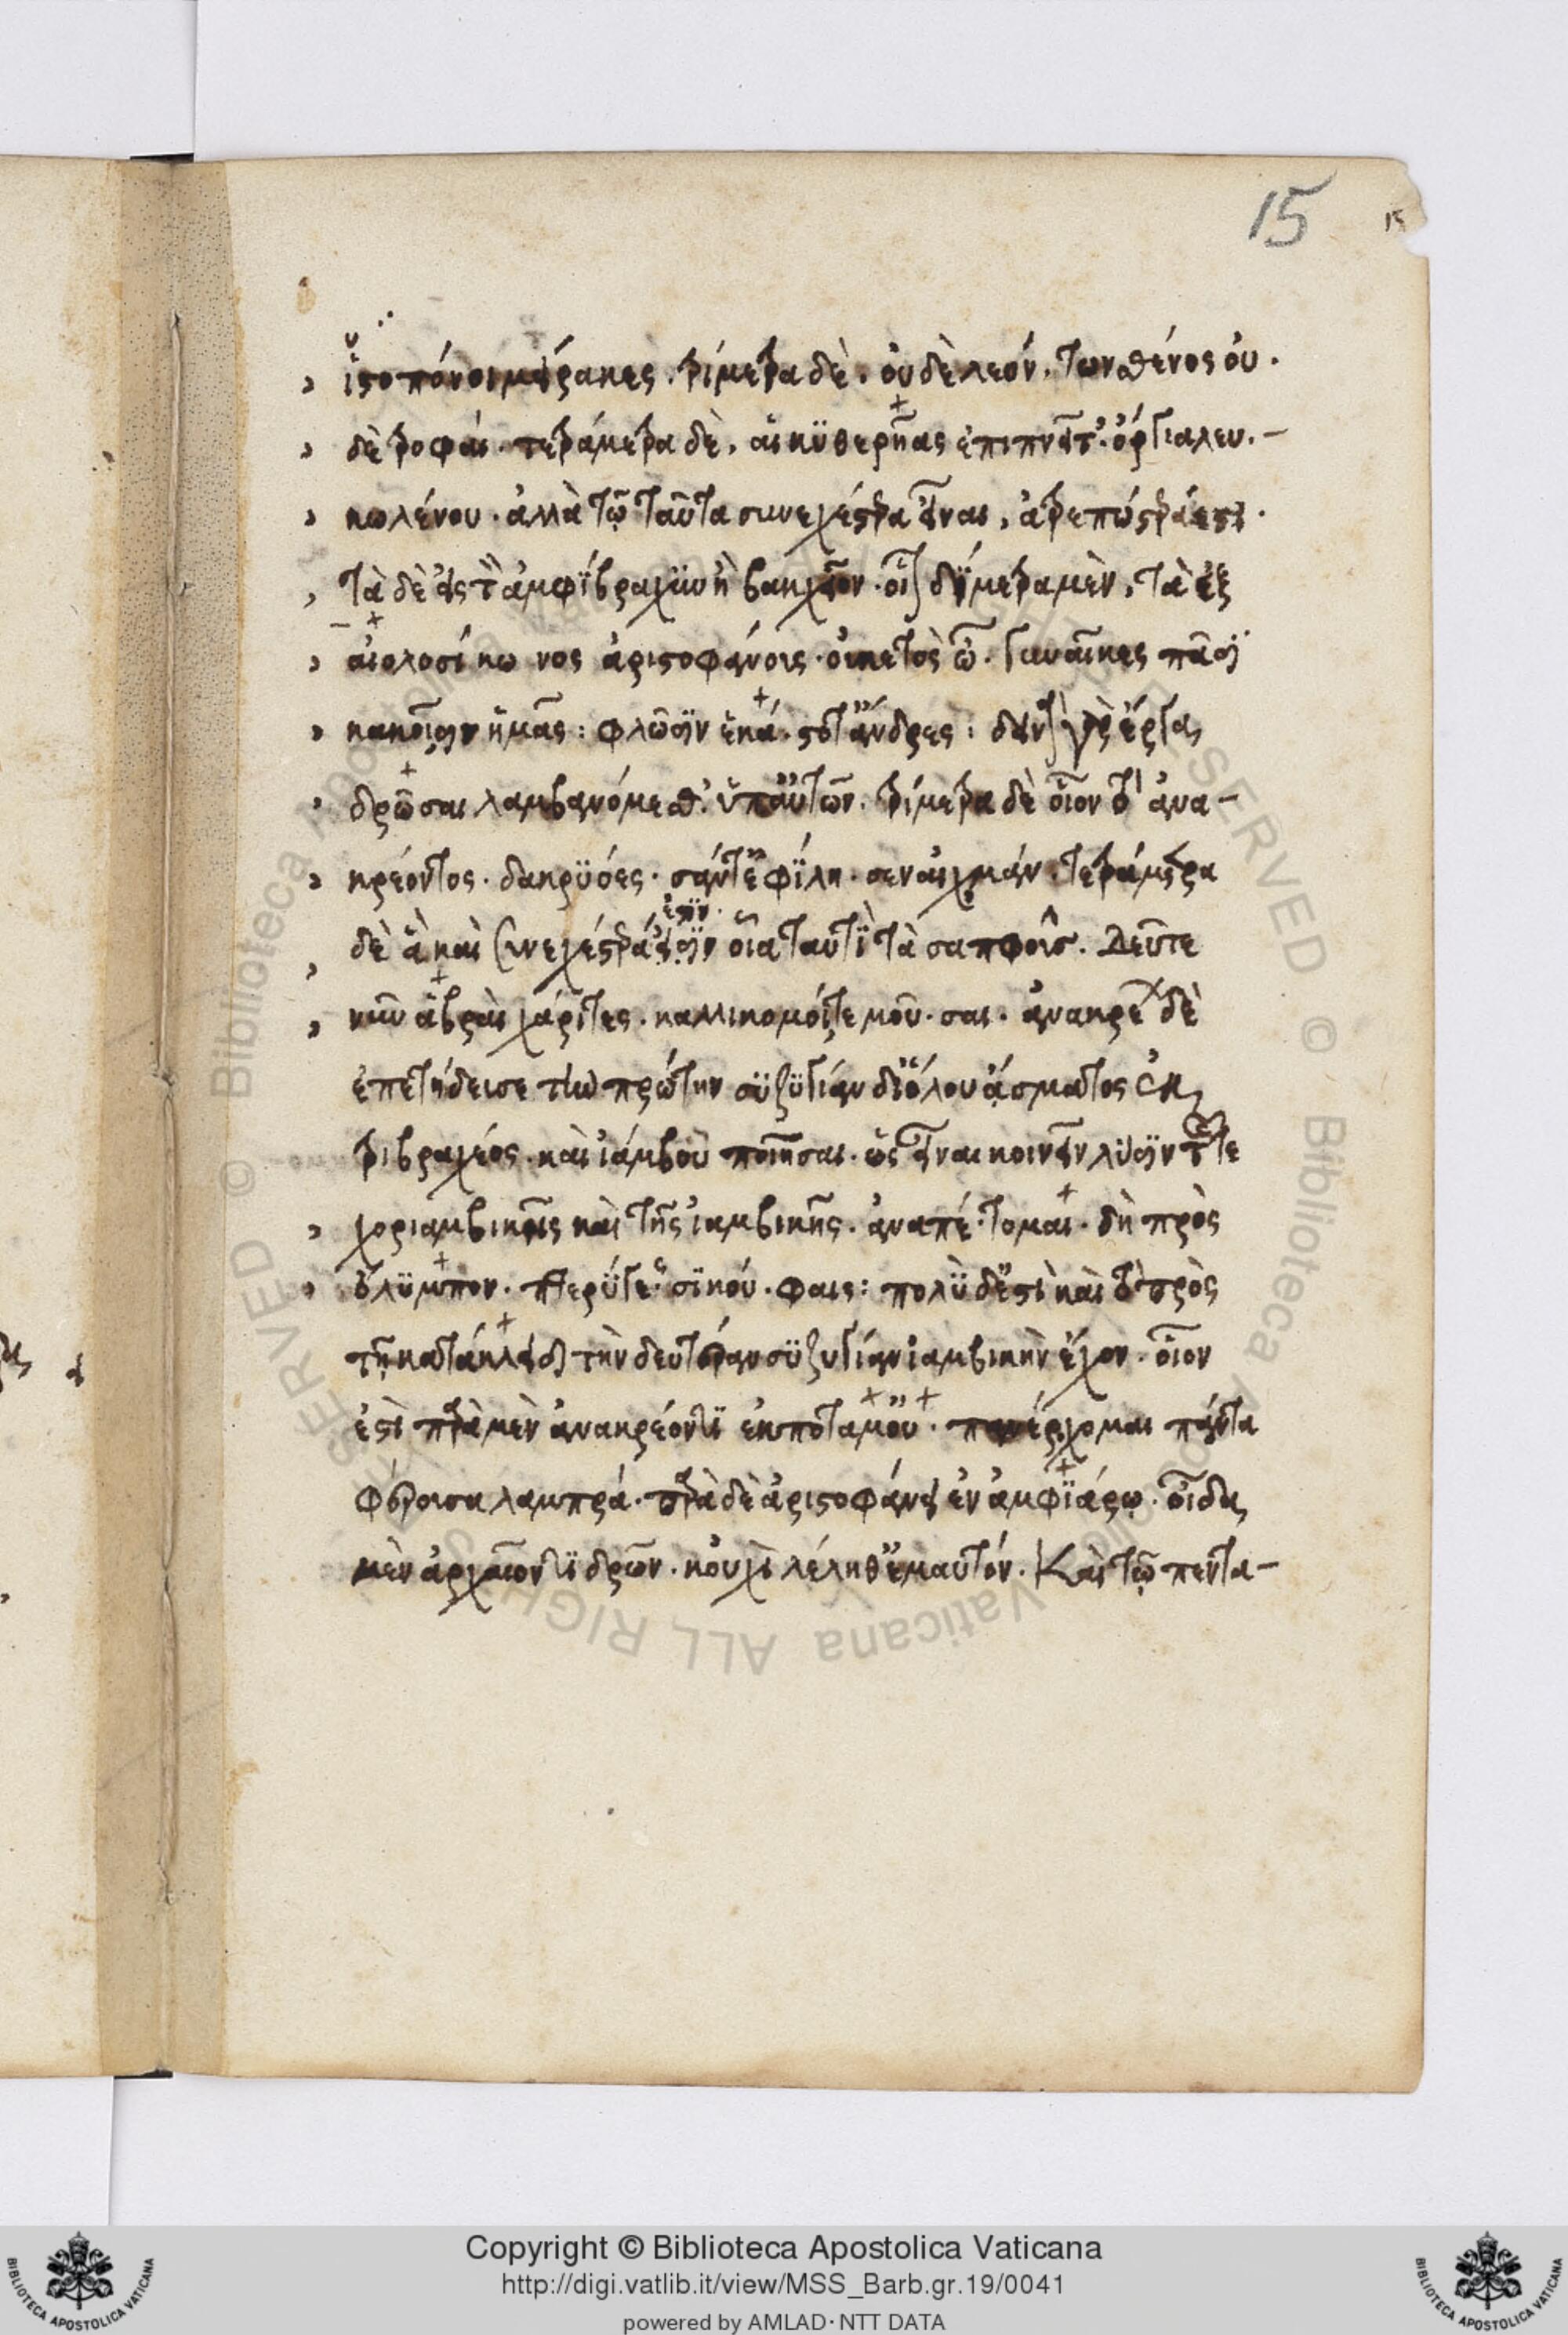 15 15
ἱστοπόνοι μείρακες. τρίμετρα δὲ. οὐδὲ λεόν. των σθένος οὐ.
δὲ τροφαί. τετράμετρα δὲ, αἳ κϋθερήας ἐπιπνεῖτ'. ὄργια λευ.-
κωλένου. ἀλλὰ τῷ ταῦτα συνεχέστερα εἶναι, ἀπρεπώστερά ἐστι.
τὰ δὲ εἰς τὸν ἀμφίβραχϋν ἢ βακχεῖον. οἷον δΐμετρα μὲν, τὰ ἐξ
αἰολοσίκωνος ἀριστοφάνους. οὐκ ἐτὸς ὦ. γυναῖκες πᾶσϊ
κακοῖσιν ἡμᾶς: φλῶσϊν ἑκά. στοτ' ἄνδρες: δεινὰ γὰρ ἔργα
δρῶσαι λαμβανόμεσθ'. ὑπ' αὐτῶν. τρίμετρα δὲ οἷον τὸ ἀνα-
κρέοντος. δακρϋόες. σάν τ' ἐφΐλη. σεν αἰχμάν. τετράμετρα
δὲ ἃ καὶ συνεχέστερά ἐστϊν οἷα ταυτῒ τὰ σαπφοῦς. Δεῦτε
νῦν ἁβραὶ χάρϊτες. καλλίκομοί τε μοῦ. σαι. ἀνακρέων δὲ
ἐπετήδευσε τὴν πρώτην σϋζϋγίαν δι' ὅλου ᾄσματος ἐκ
τριβραχέος. καὶ ἰάμβου ποιῆσαι. ὡς εἶναι κοινὴν λύσϊν τῆς τε
χοριαμβικῆς καὶ τῆς ἰαμβικῆς. ἀναπέ. τομαι. δὴ πρὸς
ὄλϋμπον. πτερύγε. σϊ κού. φαις: πολὺ δ' ἐστὶ καὶ τὸ πρὸς
τῇ κατακλεῖδι τὴν δευτέραν σϋζυγίαν ἰαμβικὴν ἔχον. οἷον
ἐστὶ παρὰ μὲν ἀνακρέοντϊ ἐκ ποταμοῦ. πανέρχομαι πάντα
φέροισα λαμπρά. παρὰ δὲ ἀριστοφάνει ἐν ἀμφϊάρῳ. οἶδα
μὲν ἀρχαῖόν τϊ δρῶν. κοὐχὶ λέληθ' ἐμαυτόν. Καὶ τῷ πεντα-
Copyright © Biblioteca Apostolica Vaticana
http://digi.vatlib.it/view/MSS_Barb.gr.19/0041
powered by AMLAD · NTT DATA